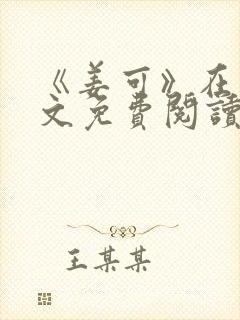 《姜可》在
文免費閱讀
王某某